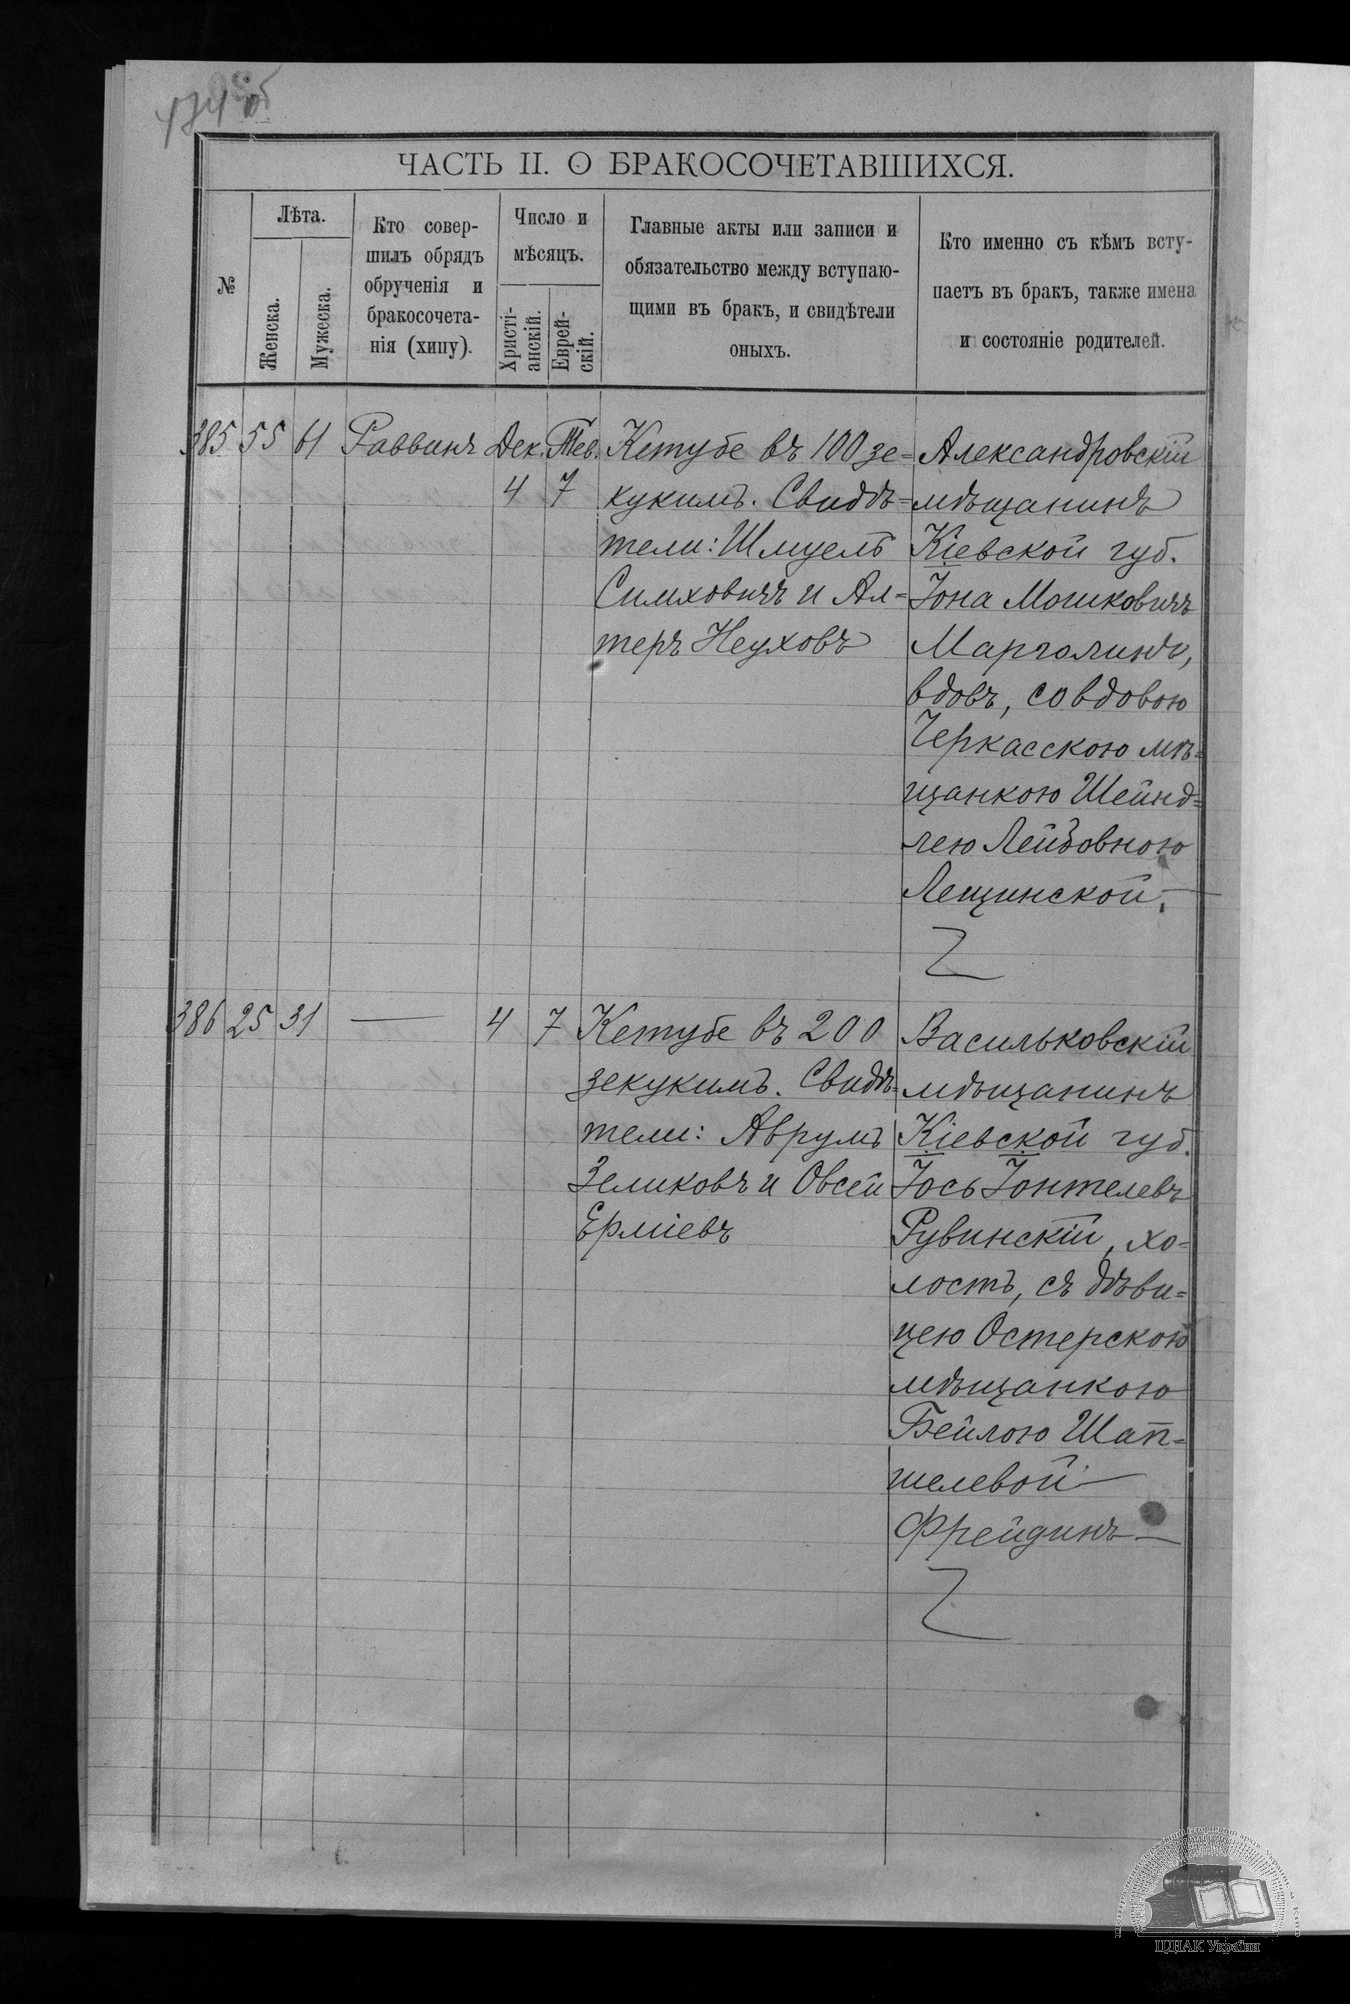 474 об
ЧАСТЬ II. О БРАКОСОЧЕТАВШИХСЯ.
№
Лѣта.
Женска.
Мужеска.
Кто совер-
шилъ обрядъ
обрученія и
бракосочета-
нія (хипу).
Число и
мѣсяцъ.
Христі-
анскій.
Еврей-
скій.
Главные акты или записи и
обязательство между вступаю-
щими въ бракъ, и свидѣтели
оныхъ.
Кто именно съ кѣмъ всту-
паетъ въ бракъ, также имена
и состояніе родителей.
385 55 61 Раввинъ Дек. Тев.
4 7
Кетубе въ 100 зе=
кукимъ. Свидѣ=
тели: Шмуель
Симховичъ и Ал=
теръ Неуховъ
Александровскій
мѣщанинъ
Кіевской губ.
Іона Мошковичъ
Марголинъ,
вдовъ, со вдовою
Черкасскою мѣ=
щанкою Шейнд=
лею Лейбовною
Лещинской.
386 25 31 — 4 7
Кетубе въ 200
зекукимъ. Свидѣ=
тели: Аврумъ
Зеликовъ и Овсей
Ерміевъ
Васильковскій
мѣщанинъ
Кіевской губ.
Іось Іонтелевъ
Рувинскій, хо=
лостъ, съ дѣви=
цею Остерскою
мѣщанкою
Бейлою Шап=
шелевой
Фрейдинъ
ЦДІАК України